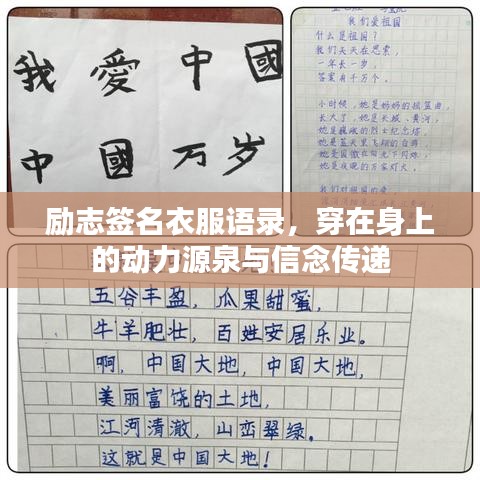 我愛中國
中國万岁
我们爱祖国
什么是祖国？
我们天天在思索，
一年长一岁，
答案有千万个。
小时候，她是妈妈的摇篮曲，
长大了，她是长城、黄河，
她是巍峨的烈士纪念塔，
她是蓝天里飞翔的白鸽，
她是国徽在阳光下闪烁，
她是夜晚的万家灯火。
我们对祖国的爱
励志签名衣服语录，穿在身上
的动力源泉与信念传递
五谷丰盈，瓜果甜蜜，
牛羊肥壮，百姓安居乐业。
啊，中国大地，中国大地，
美丽富饶的土地，
江河清澈，山峦翠绿。
这就是中国大地！